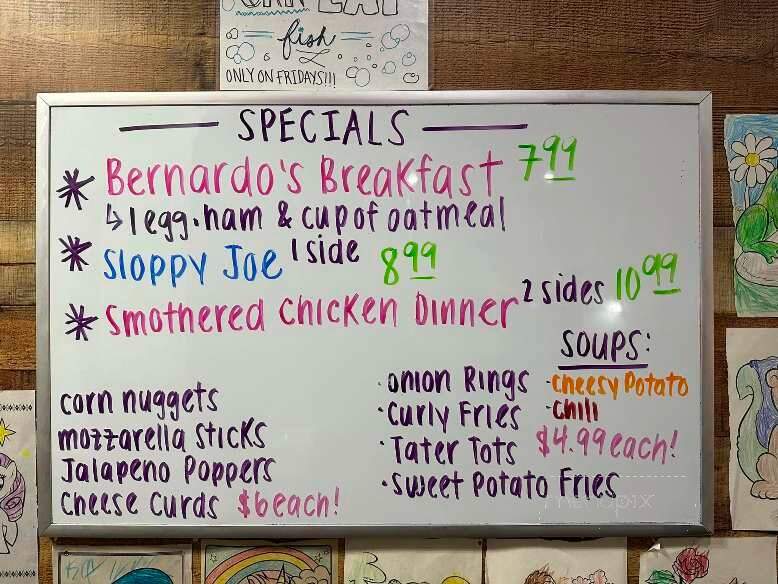 fish
ONLY ON FRIDAYS!!!
SPECIALS
* Bernardo's Breakfast 7 99
↳ 1 egg. ham & cup of oatmeal
* Sloppy Joe 1 side 8 99
* Smothered Chicken Dinner 2 sides 10 99
SOUPS:
- Cheesy Potato
- Chili
corn nuggets
mozzarella sticks
Jalapeno Poppers
Cheese Curds $6 each!
· Onion Rings
· Curly Fries
· Tater Tots $4.99 each!
· Sweet Potato Fries